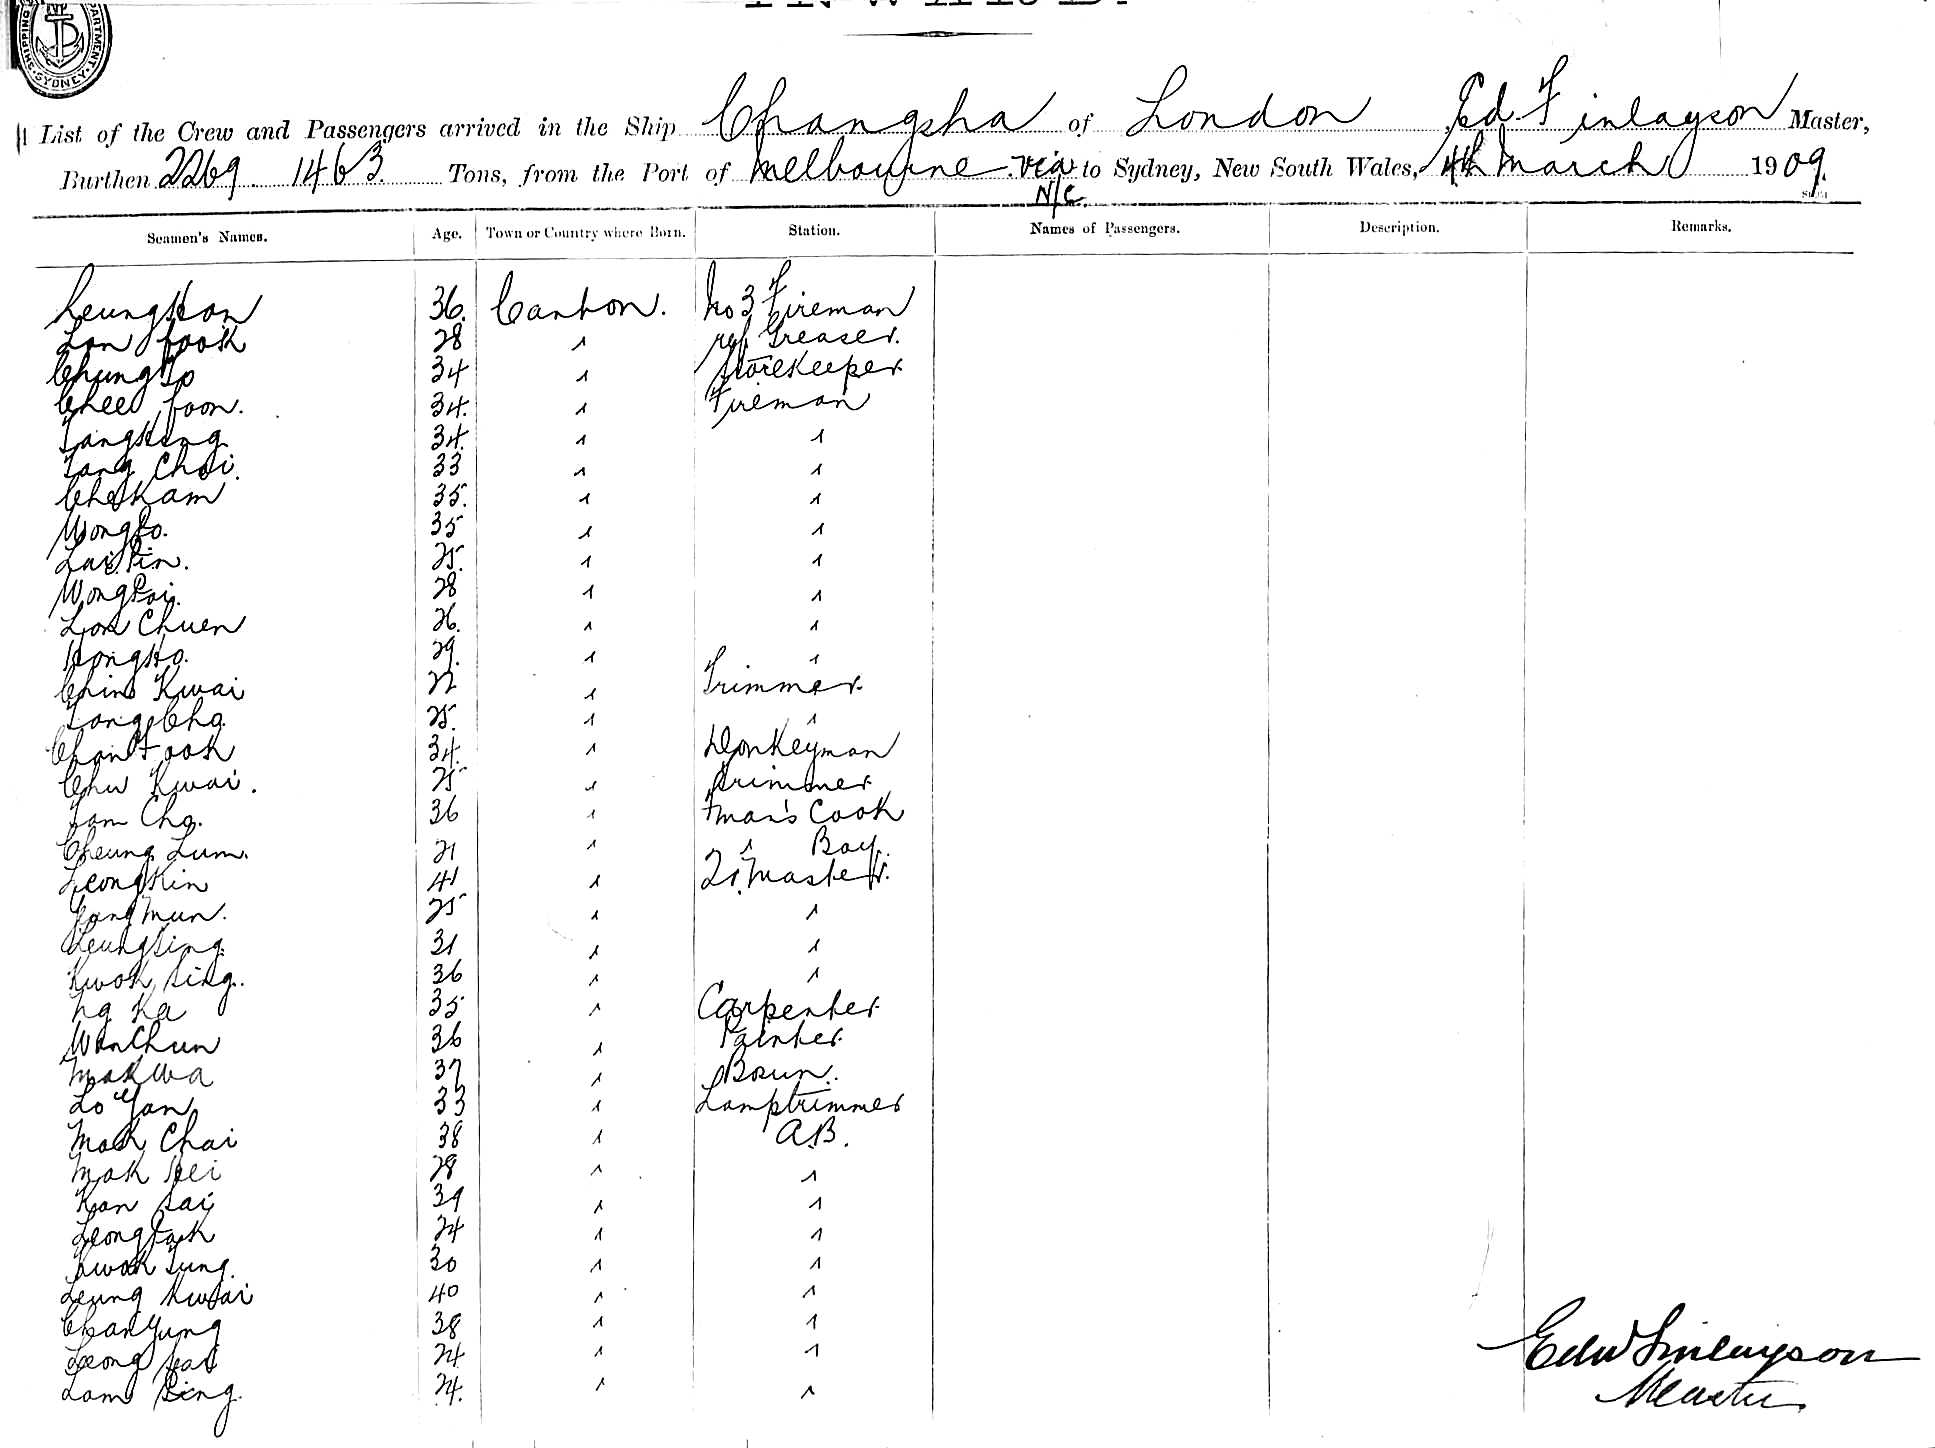 SHIPPING DEPARTMENT SYDNEY
INWARD.
List of the Crew and Passengers arrived in the Ship Changsha of London Ed. Finlayson Master,
Burthen 2269 1463 Tons, from the Port of Melbourne via N/C to Sydney, New South Wales, 4th March 1909.
Seamen's Names. Age. Town or Country where Born. Station. Names of Passengers. Description. Remarks.
36. Canton. No 3 Fireman
Lon Fook 28 " ref Greaser.
Chung 34 " Storekeeper
Chee Foon. 34. " Fireman
34. " "
Tang Choi. 33 " "
Che Kam 35. " "
Wong Po. 35 " "
Lai Pin. 25. " "
Wong Poi. 28 " "
Lom Chuen 26. " "
29. " "
Chin Kwai 22 " Trimmer.
Tong Cho. 25. " "
Chan Fook 34. " Donkeyman
Chu Kwai. 25 " Trimmer
Tom Cho. 36 " Fman's Cook
Cheung Lum. 21 " " Boy.
Leong Kin 41 " Qr. Master.
Mun. 25 " "
Leung Sing. 31 " "
Kwok Sing. 36 " "
Ng Ka 35 " Carpenter
Wan Chun 36 " Painter
Mak Wa 37 " Bosun.
Lo Yan 33 " Lamptrimmer
Mak Chai 38 " A.B.
Mak 28 " "
Kan Sai 39 " "
Leong 24 " "
Kwok Tung. 30 " "
Leung Kwai 40 " "
Chan Yung 38 " "
Leong 24 " "
Lam Sing. 24. " "
Edw Finlayson
Master.